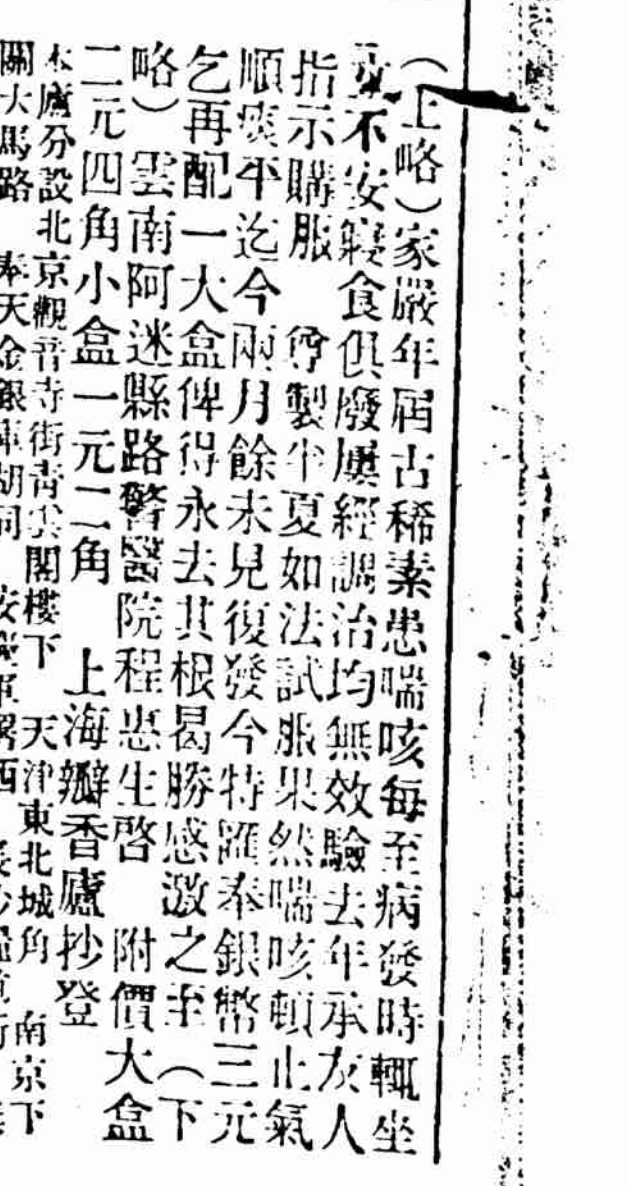 （上略）家嚴年屆古稀素患喘咳每至病發時輒坐
臥不安寢食俱廢屢經調治均無效驗去年承友人
指示購服　尊製半夏如法試服果然喘咳頓止氣
順痰平迄今兩月餘未見復發今特匯奉銀幣三元
乞再配一大盒俾得永去其根曷勝感激之至（下
略）雲南阿迷縣路警醫院程惠生啓　附價大盒
二元四角小盒一元二角　上海瓣香廬抄登
本廬分設北京觀音寺街青雲閣樓下　天津東北城角　南京下
關大馬路　奉天金銀庫胡同